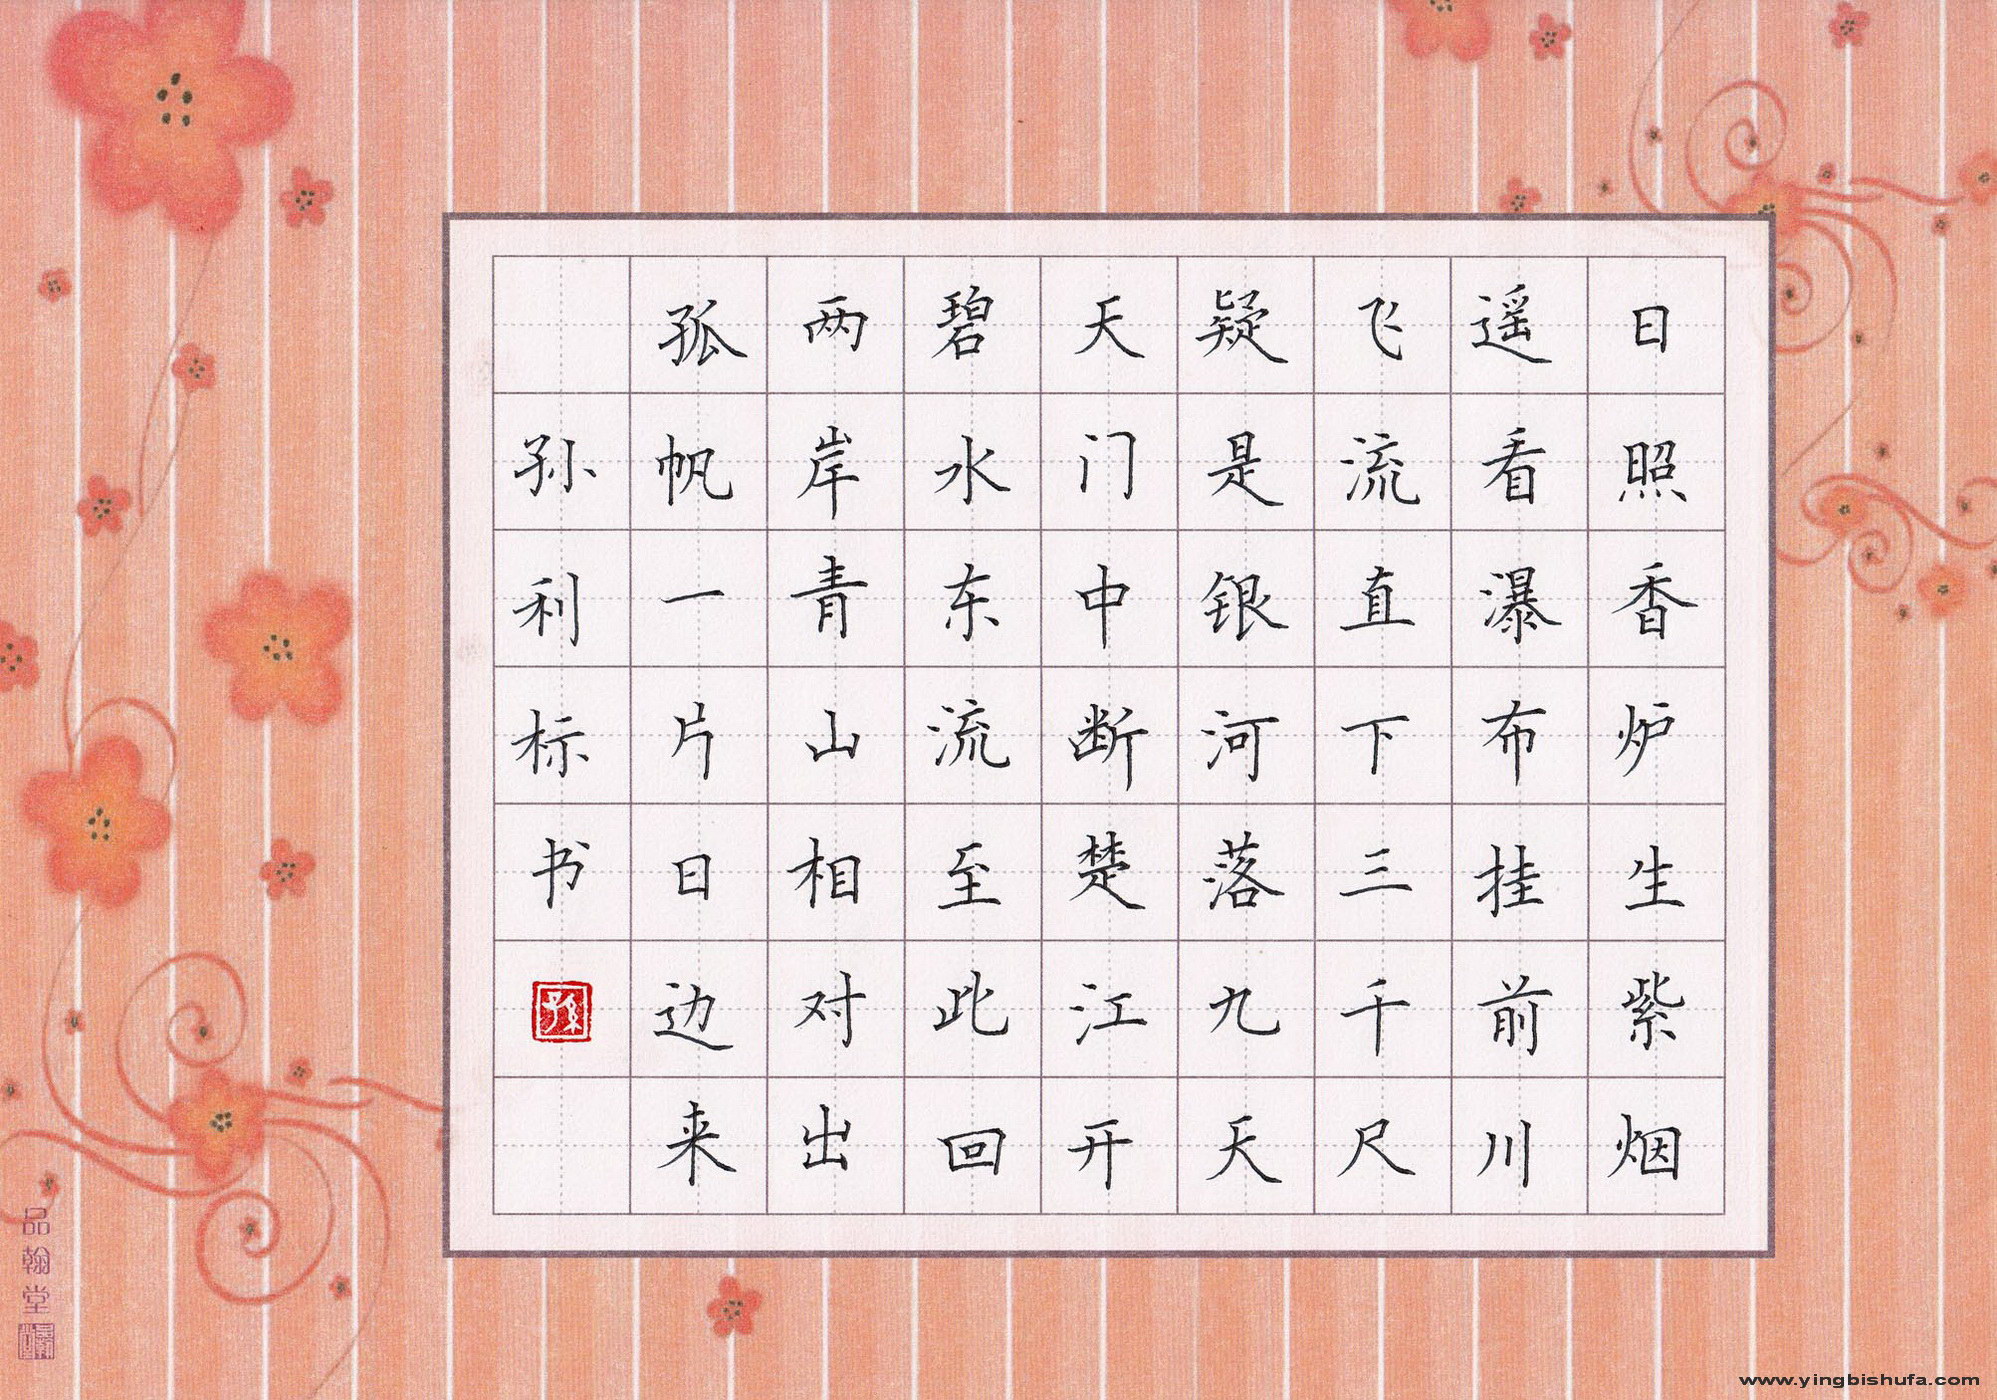 日照香炉生紫烟
遥看瀑布挂前川
飞流直下三千尺
疑是银河落九天
天门中断楚江开
碧水东流至此回
两岸青山相对出
孤帆一片日边来
孙利标书
孫
品翰堂
www.yingbishufa.com